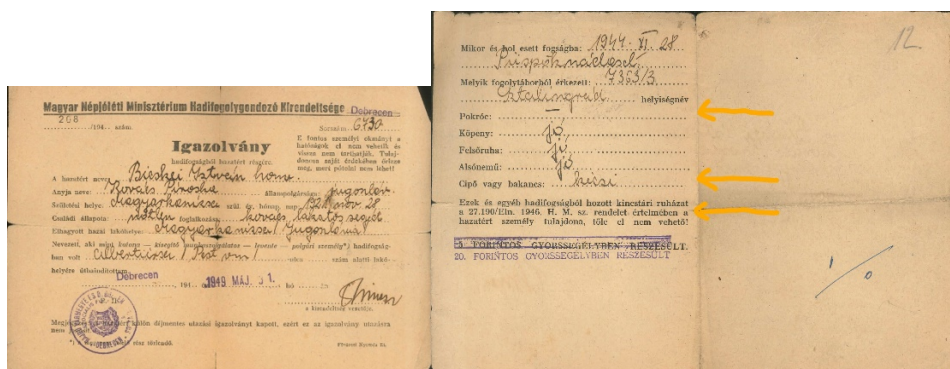 Magyar Népjóléti Minisztérium Hadifogolygondozó Kirendeltsége Debrecen
268 /194 . szám.
Sorszám: 6730
Igazolvány
hadifogságból hazatért részére.
E fontos személyi okmányt a
hatóságok el nem vehetik és
vissza nem tarthatják. Tulaj-
donosa saját érdekében őrizze
meg, mert pótolni nem lehet!
A hazatért neve: István honv.
Anyja neve: Kovács Piroska Állampolgársága: jugoszláv
Születési helye: Magyarkanizsa szül. év, hónap, nap: nov. 28
Családi állapota: nőtlen foglalkozása: kovács, lakatos segéd
Elhagyott hazai lakóhelye: Magyarkanizsa
Nevezett, aki mint katona — kisegítő munkaszolgálatos — levente — polgári személy*) hadifogság-
ban volt Albertirsa / Pest vm / utca szám alatti lakó-
helyére útbaindíttatott.
Debrecen, 194 1949 MÁJ. 1. hó -n
a kirendeltség vezetője.
Megjegyzés: külön díjmentes utazási igazolványt kapott, ezért ez az igazolvány utazásra
nem
rész törlendő.
Mikor és hol esett fogságba: 1944. XI. 28
Melyik fogolytáborból érkezett: 7363/3
Sztalingrád helyiségnév
Pokróc: —
Köpeny: jó
Felsőruha: jó
Alsónemű: jó
Cipő vagy bakancs:
Ezek és egyéb hadifogságból hozott kincstári ruházat
a 27.190/Eln. 1946. H. M. sz. rendelet értelmében a
hazatért személy tulajdona, tőle el nem vehető!
5 FORINTOS GYORSSEGÉLYBEN RÉSZESÜLT.
20. FORINTOS GYORSSEGÉLYBEN RÉSZESÜLT
12
1/0